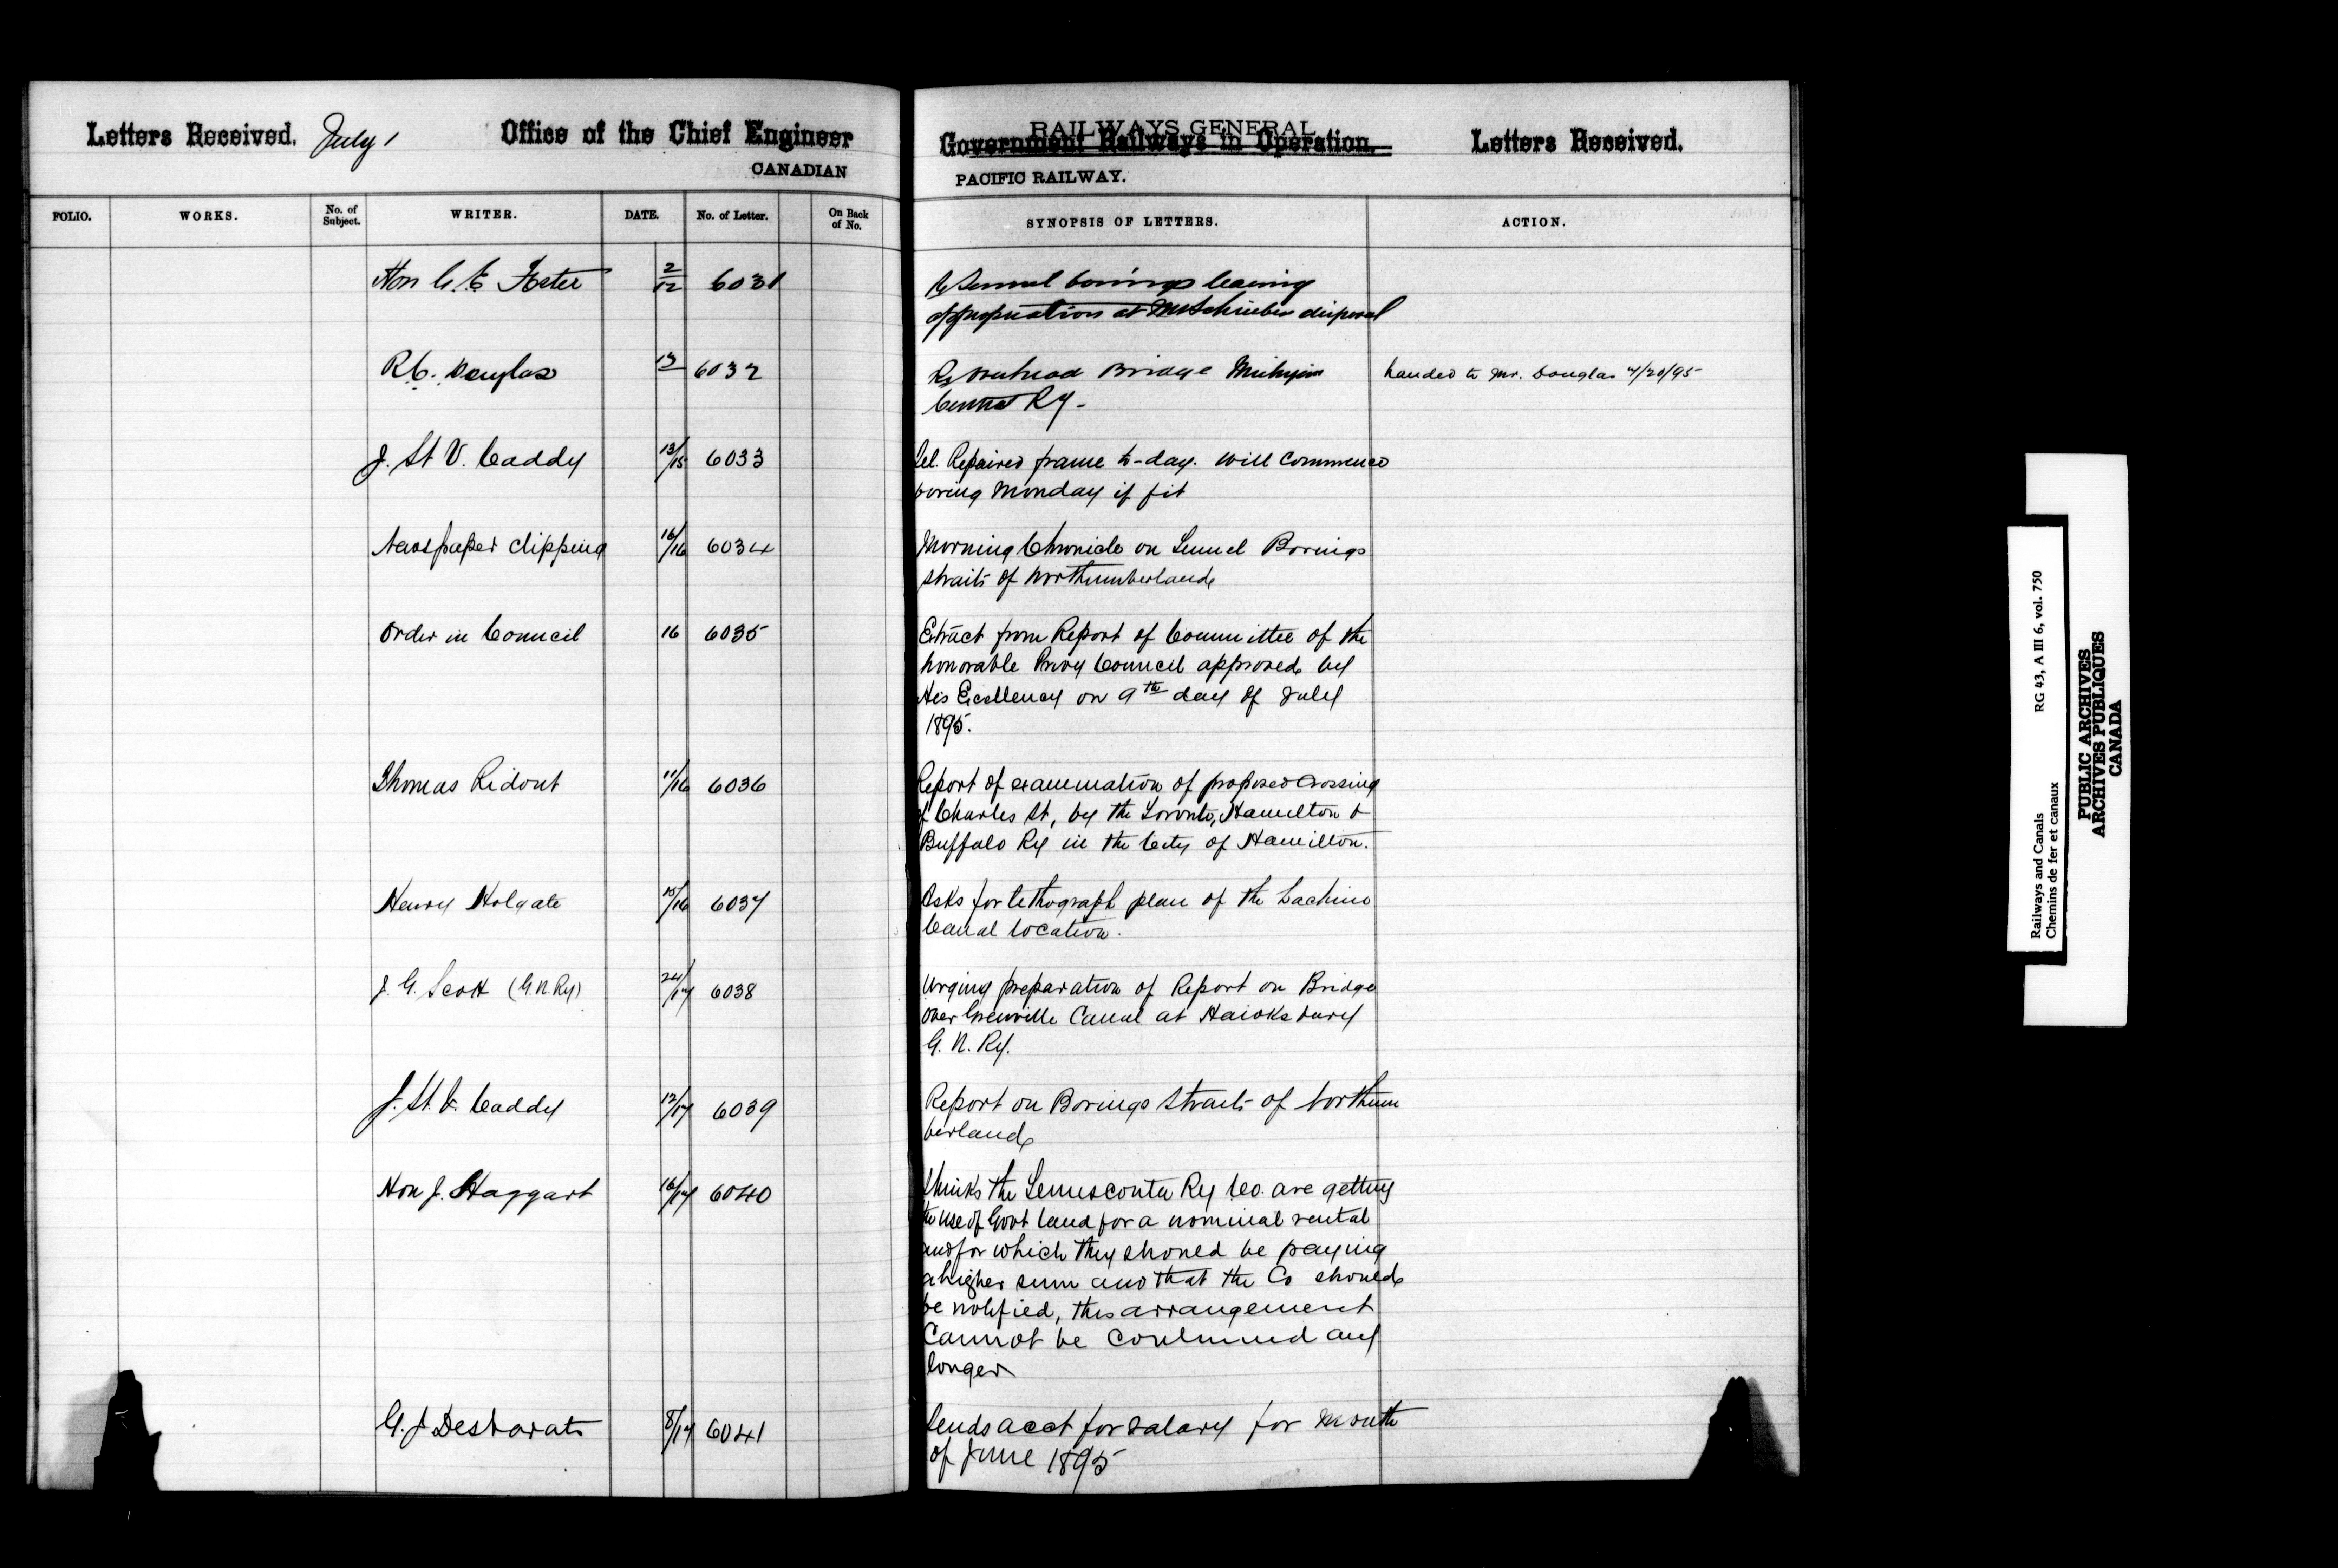 Letters Received. July 1 Office of the Chief Engineer
CANADIAN
RAILWAYS GENERAL
Government Railways in Operation. Letters Received.
PACIFIC RAILWAY.
FOLIO. WORKS. No. of Subject. WRITER. DATE. No. of Letter. On Back of No.
SYNOPSIS OF LETTERS. ACTION.
Hon G. E Foster 2/12 6031 Re Tunnel borings leaving
appropriation at Mr Schrieber disposal
R.C. Douglas 13 6032 Re Overhead Bridge Michigan handed to Mr. Douglas 7/20/95
Central Ry-
J. St V. Caddy 13/15 6033 Tel. Repaired frame to-day. Will Commence
boring Monday if fit
Newspaper Clipping 16/16 6034 Morning Chronicle on Tunnel Borings
Straits of Northumberland
Order in Council 16 6035 Extract from Report of Committee of the
honorable Privy Council approved by
His Excellency on 9th day of July
1895.
Thomas Ridout 11/16 6036 Report of examination of proposed Crossing
of Charles St, by the Toronto, Hamilton &
Buffalo Ry in the City of Hamilton.
Henry Holgate 15/16 6037 Asks for lithograph plan of the Lachine
Canal location.
J. G. Scott (G.N.Ry) 24/17 6038 Urging preparation of Report on Bridge
over Grenville Canal at Hawksbury
G. N. Ry.
J. St. V. Caddy 12/17 6039 Report on Borings Straits of Northum
berland
Hon J. Haggart 16/17 6040 Thinks the Temisconta Ry Co. are getting
the use of Govt land for a nominal rental
and for which they should be paying
a higher sum and that the Co should
be notified, this arrangement
Cannot be continued any
longer
G. J Desbarats 8/17 6041 Sends acct for salary for month
of June 1895
Railways and Canals RG 43, A III 6, vol. 750
Chemins de fer et canaux
PUBLIC ARCHIVES
ARCHIVES PUBLIQUES
CANADA